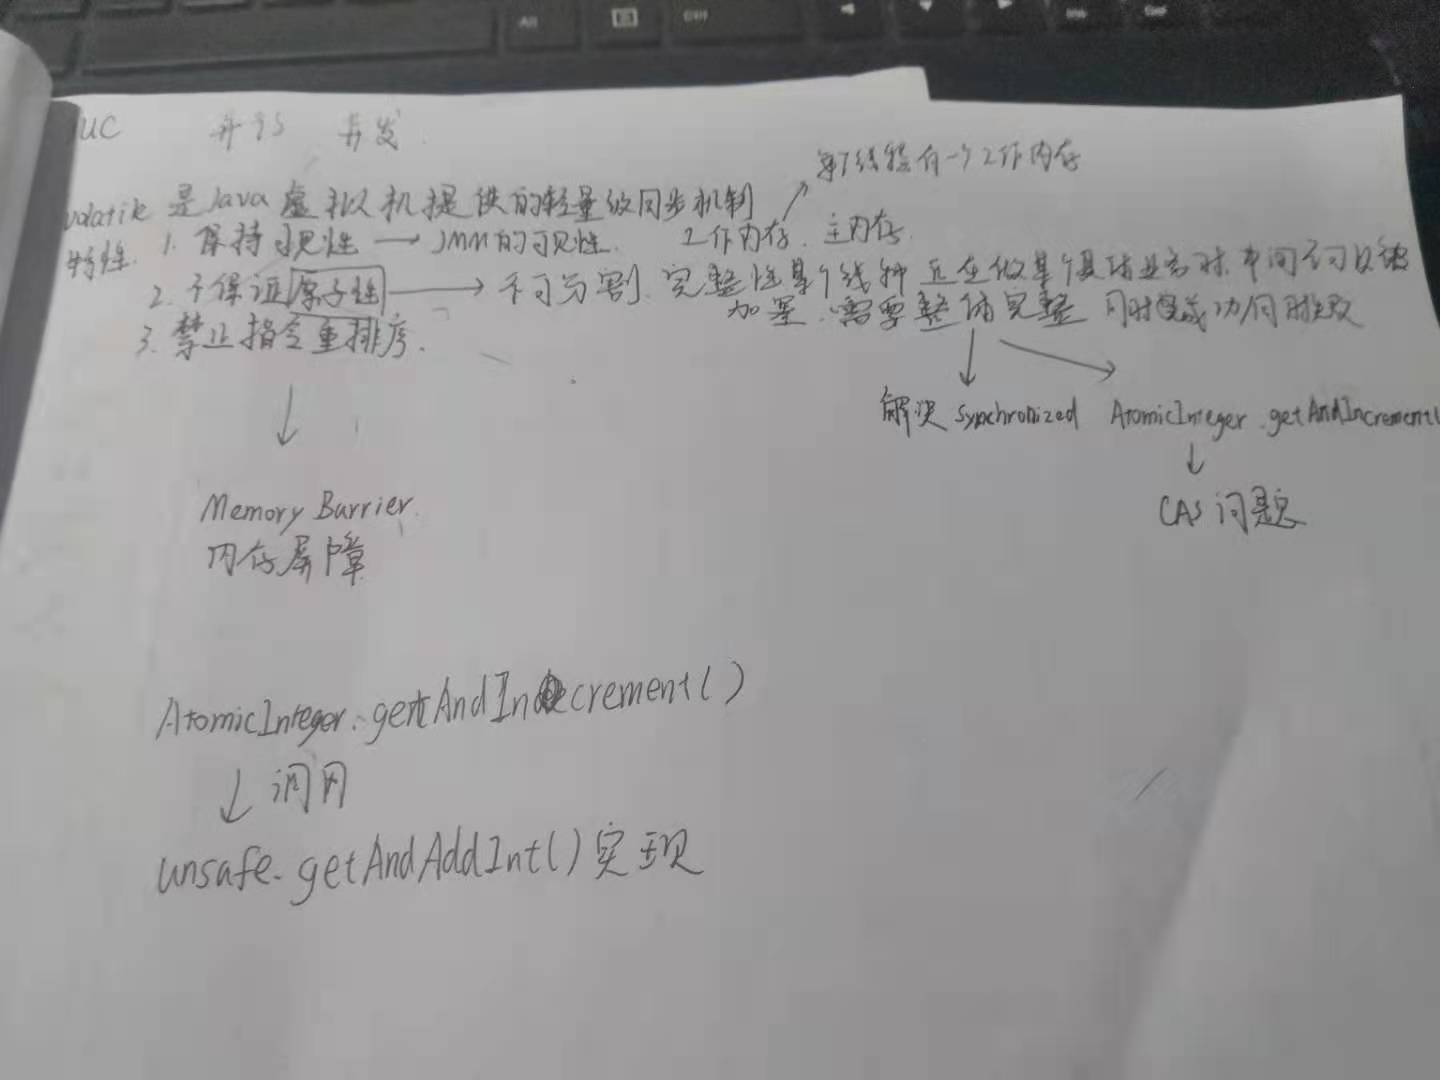 UC 并行 并发.
每个线程有一个工作内存
volatile 是Java虚拟机提供的轻量级同步机制
特性. 1. 保持可见性 → JMM的可见性. 工作内存. 主内存.
2. 不保证原子性 → 不可分割. 完整性某个线种 正在做某个具体业务时. 中间不可以被
加塞. 需要整体完整 同时成功同时失败
3. 禁止指令重排序.
解决 Synchronized AtomicInteger.getAndIncrement(
CAS问题
Memory Barrier.
内存屏障
AtomicInteger.getAndIncrement()
↓ 调用
unsafe.getAndAddInt()实现